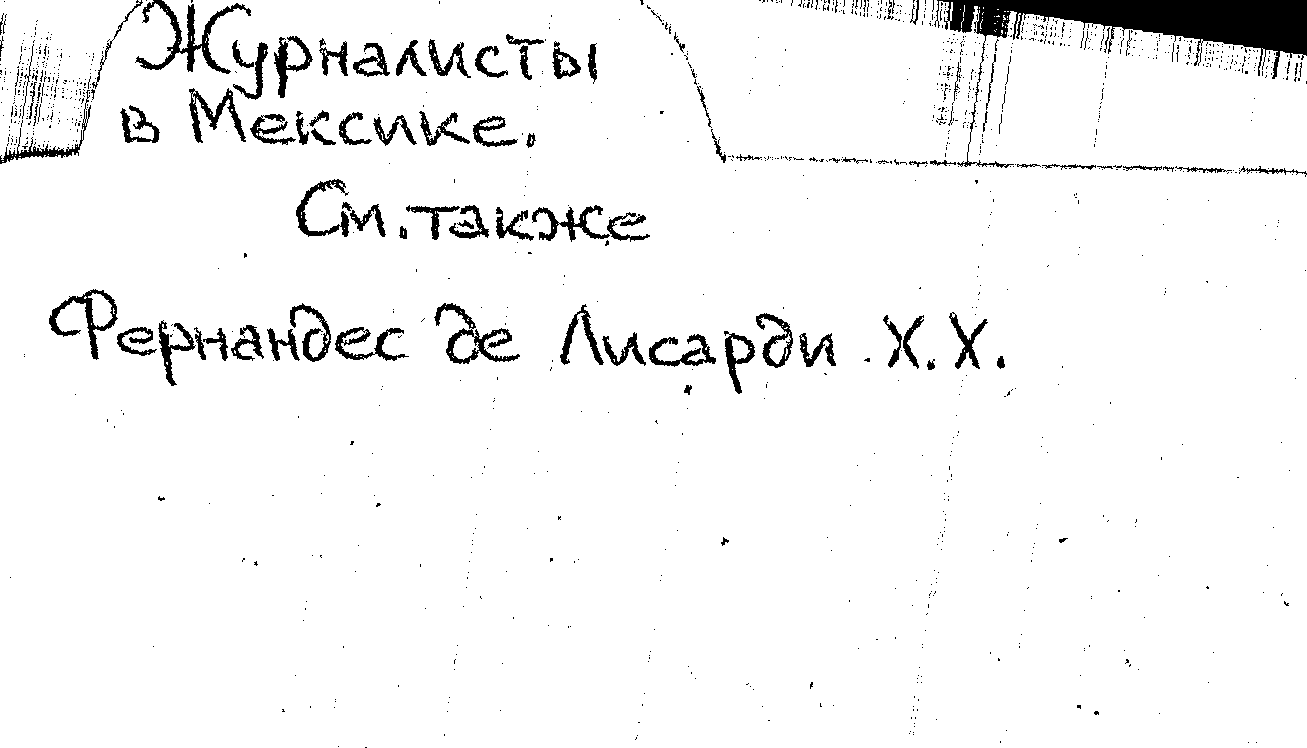 Журналисты
в Мексике.
См. также
Фернандес де Лисарди Х.Х.